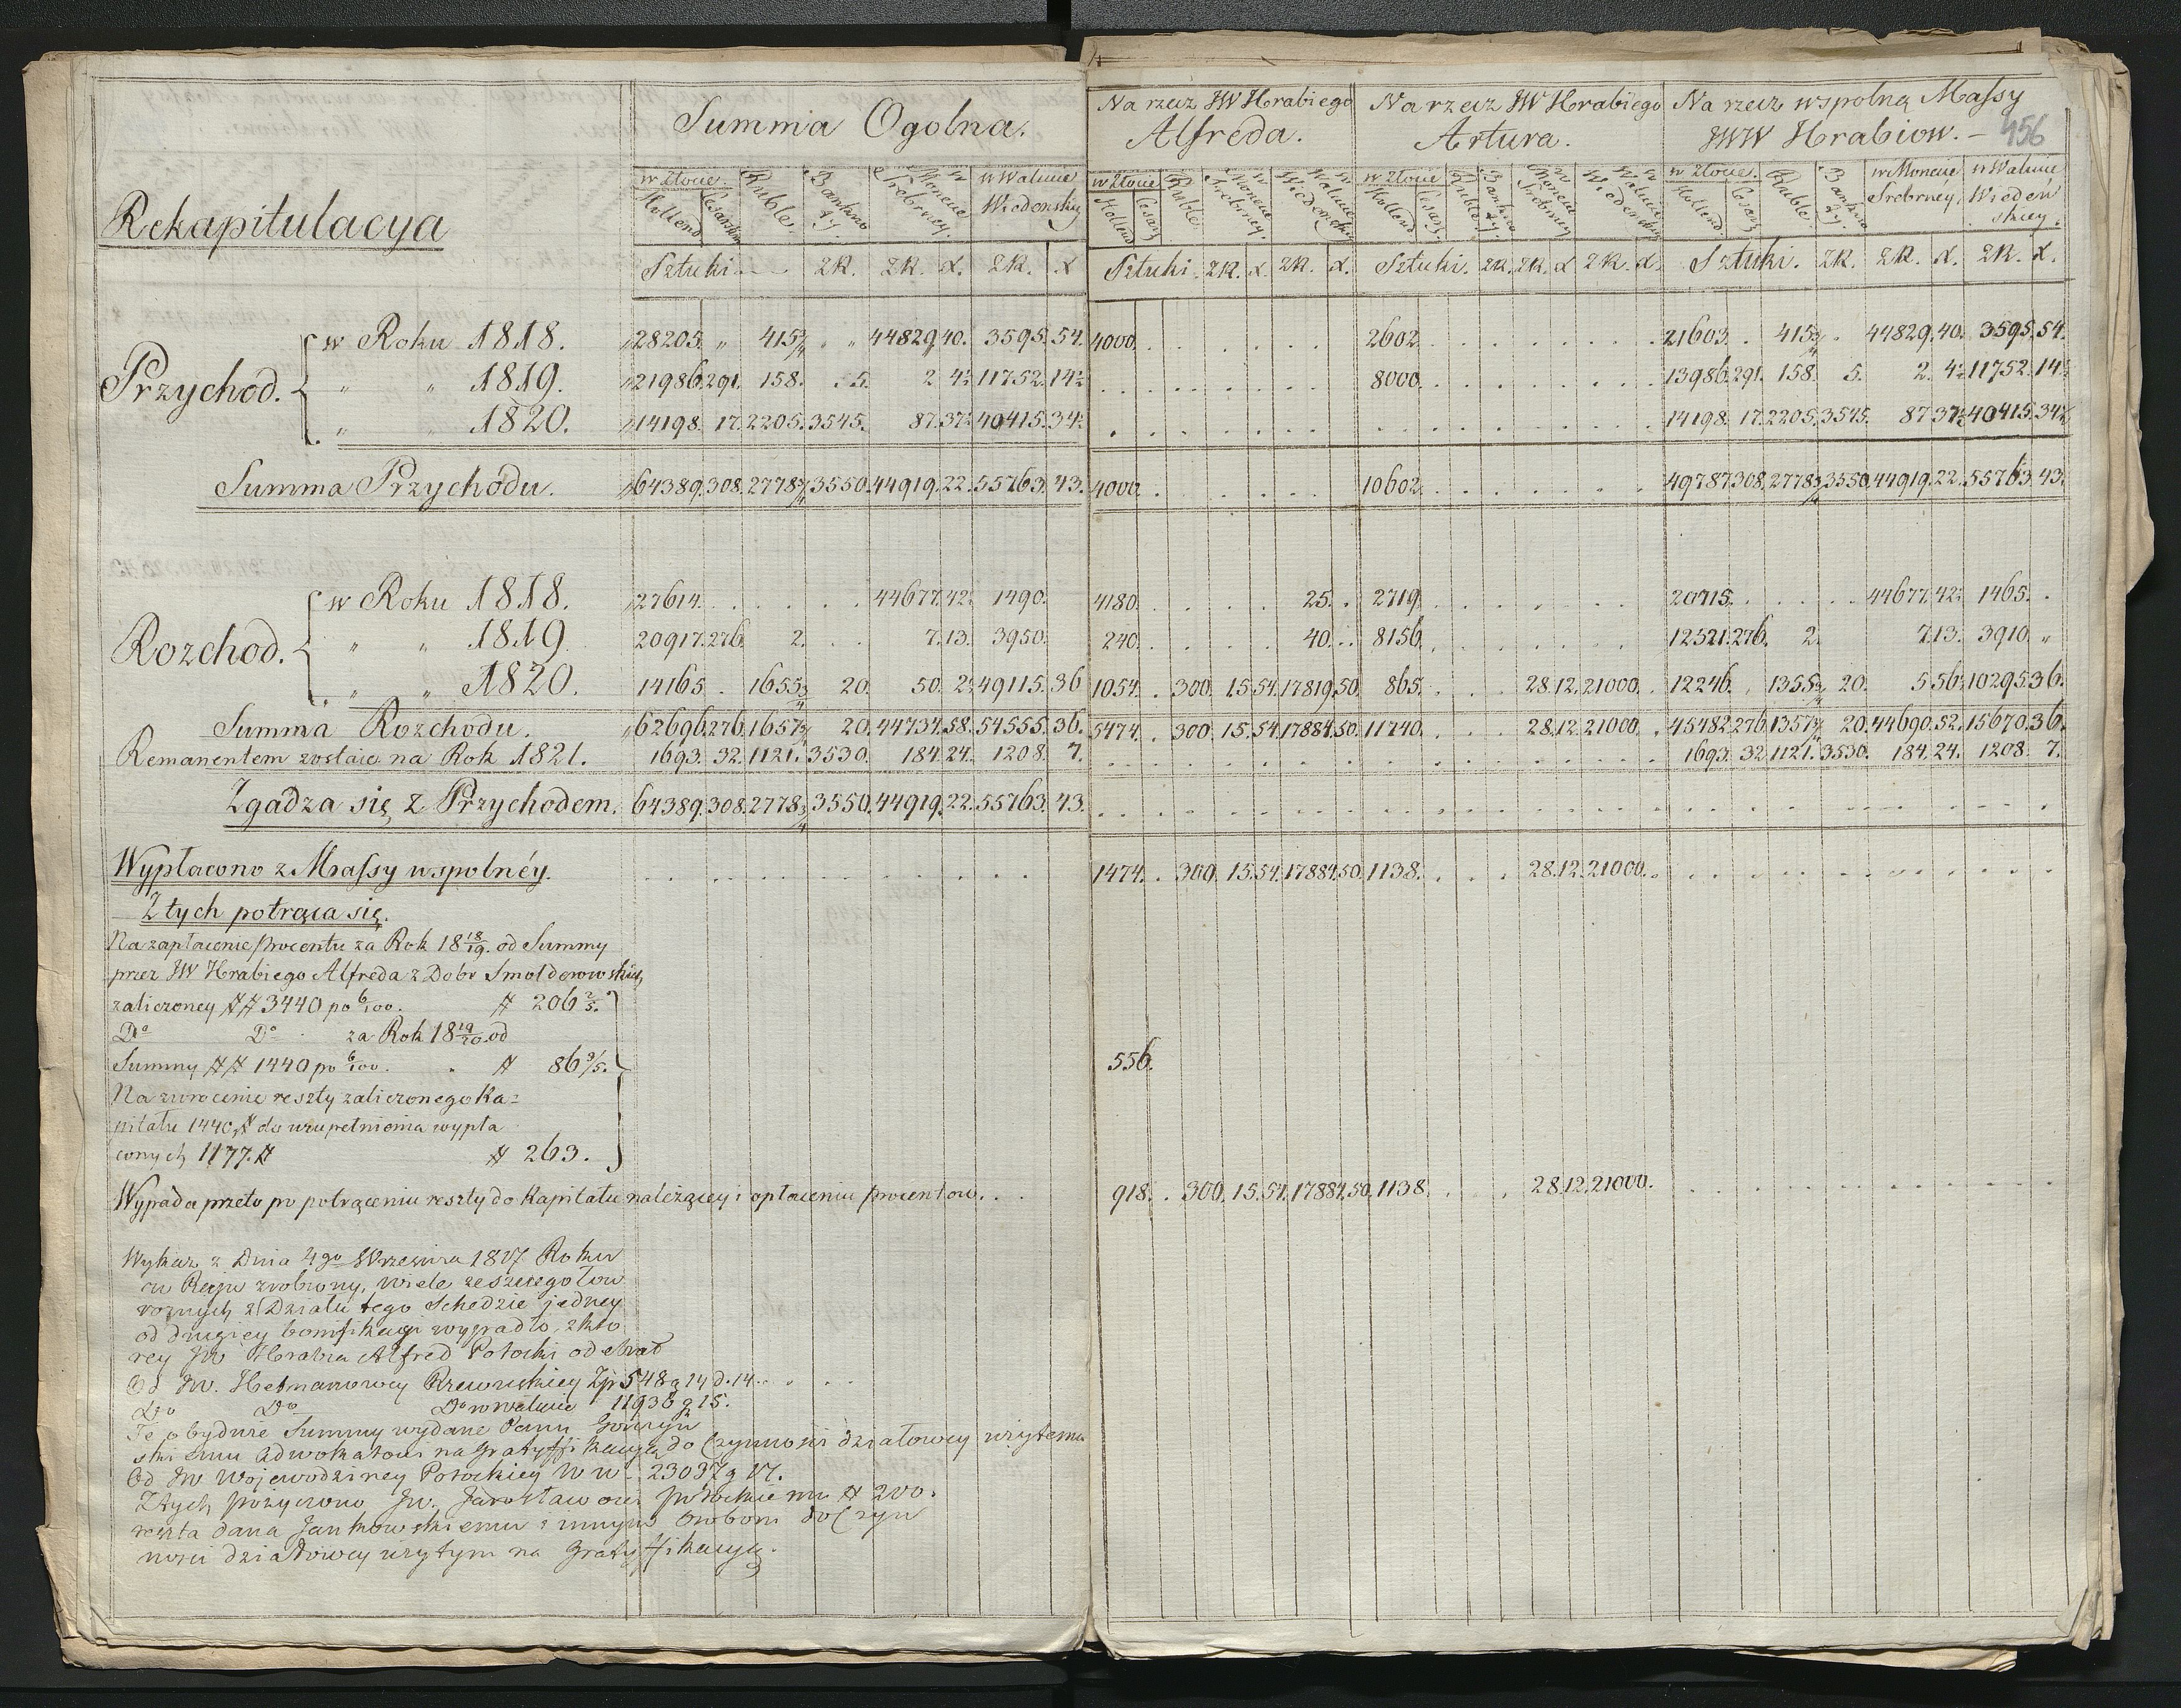 Rekapitulacya
Summa Ogolna.
Na rzecz JW Hrabiego Alfreda.
Na rzecz JW Hrabiego Artura.
Na rzecz wspolną Massy JWW Hrabiow. –
456
w Złocie. Ruble. w Monecie Srebrney. w Walucie Wiedenskiey
Hollend. Cesarskim
w Złocie Rubel w Monecie Srebrney. w Walucie Wiedenskiey
Hollend Cesars
w Złocie Ruble w Monecie Srebrney w Walucie Wiedenskiey
Hollend. Cesar.
w Złocie. Ruble. w Monecie Srebrney. w Walucie Wiedenskiey.
Hollend. Cesars
Sztuki ZR. ZR. X. ZR. X
Sztuki. ZR. X. ZR. X.
Sztuki. ZR. ZR. X ZR. X.
Sztuki. ZR. ZR. X. ZR. X.
Przychod.
w Roku 1818. 28205. „ 415¾ „ „ 44829,40. 3595.54. 4000. 2602. 21603. . 415¾ . 44829,40. 3595.54.
„ „ 1819. 21986.291. 158. . 5. 2 4½ 11752.14½ 8000. 13986.291. 158. 5. 2. 4½ 11752.14½
„ „ 1820. 14198. 17.2205.3545. 87.37½ 40415.34½ 14198. 17.2205.3545. 87 37½ 40415.34½
Summa Przychodu. 64389.308.2778¾3550.44919.22.55763.43. 4000. 10602. 49787.308.2778¾3550.44919.22.55763.43.
Rozchod.
w Roku 1818. 27614. 44677.42. 1490. 4180. 25. . 2719. 20715. 44677.42. 1465. .
„ „ 1819 20917.276. 2. 7.13. 3950. 240. 40. . . 8156. 12521.276. 2. 7.13. 3910 „
„ „ 1820. 14165 . 1655¾ 20. 50. 2. 49115.36 1054. . 300. 15.54.17819.50. 865. 28.12.21000. . 12246. . 1355¾ 20. 5 56. 10295.36.
Summa Rozchodu. 62696.276.1657¾ 20.44734.58.54555.36. 5474. . 300. 15.54.17884.50. 11740. 28.12.21000. . 45482.276.1357¾ 20.44690.52.15670.36.
Remanentem zostaie na Rok 1821. 1693. 32. 1121. 3530. 184.24. 1208. 7. 1693. 32 1121. 3530. 184.24. 1208. 7.
Zgadza się z Przychodem. 64389.308.2778¾3550.44919.22.55763.43.
Wypłacono z Massy wspolnéy. 1474. . 300. 15.54.17884.50. 1138. 28.12.21000.
Z tych potrąca się.
Na zapłacenie procentu za Rok 18 18/19. od Summy
przez JW Hrabiego Alfreda z Dobr
zaliczoney ## 3440 po 6/100. # 206 2/5.
Do Do za Rok 18 19/20. od
Summy ## 1440 po 6/100. # 86 3/5.
556.
Na zwrocenie reszty zaliczonego Ka=
pitału 1440 # do uzupełnienia wypła
conych 1177. # # 263.
Wypada przeto po potrąceniu reszty do Kapitału należącey i opłaceniu procentow. . . 918. . 300. 15.54.17884.50. 1138. 28.12.21000.
Wykaz z Dnia 4go Września 1817 Roku
zrobiony, wiele szczegołow
roznych z Działu tego Schedzie jedney
od drugiey bonifikacyi wypadło, z kto
rey JW Hrabia Alfred Potocki odebrał
Od JW. Hetmanowey Rzewuskiey Zp 548 g 14 d. 14.
Do Do Do w walucie 11936 g 15.
Te obydwie Summy wydane Panu
skiemu Adwokatowi na Gratyffikacyą do Czynnosci działowey użytemu
Od JW Wojewodziney Potockiey W W 23037 g 17.
Z tych pożyczono JW. Jarosławowi Potockiemu # 200.
reszta dana Jankowskiemu i innym Osobom do Czyn
nosci działowey użytym na Gratyffikacyą.